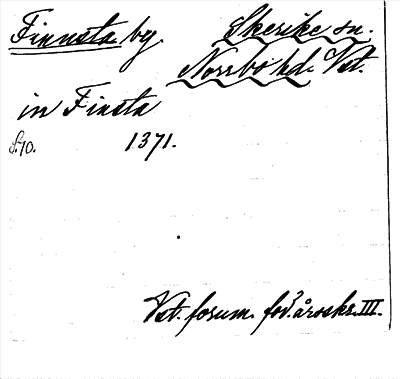 Finnsta by. Skerike sn.
Norrbo hd. Vst.
in Finsta
S. 70. 1371.
Vst. fornm. för. årsskr. III.